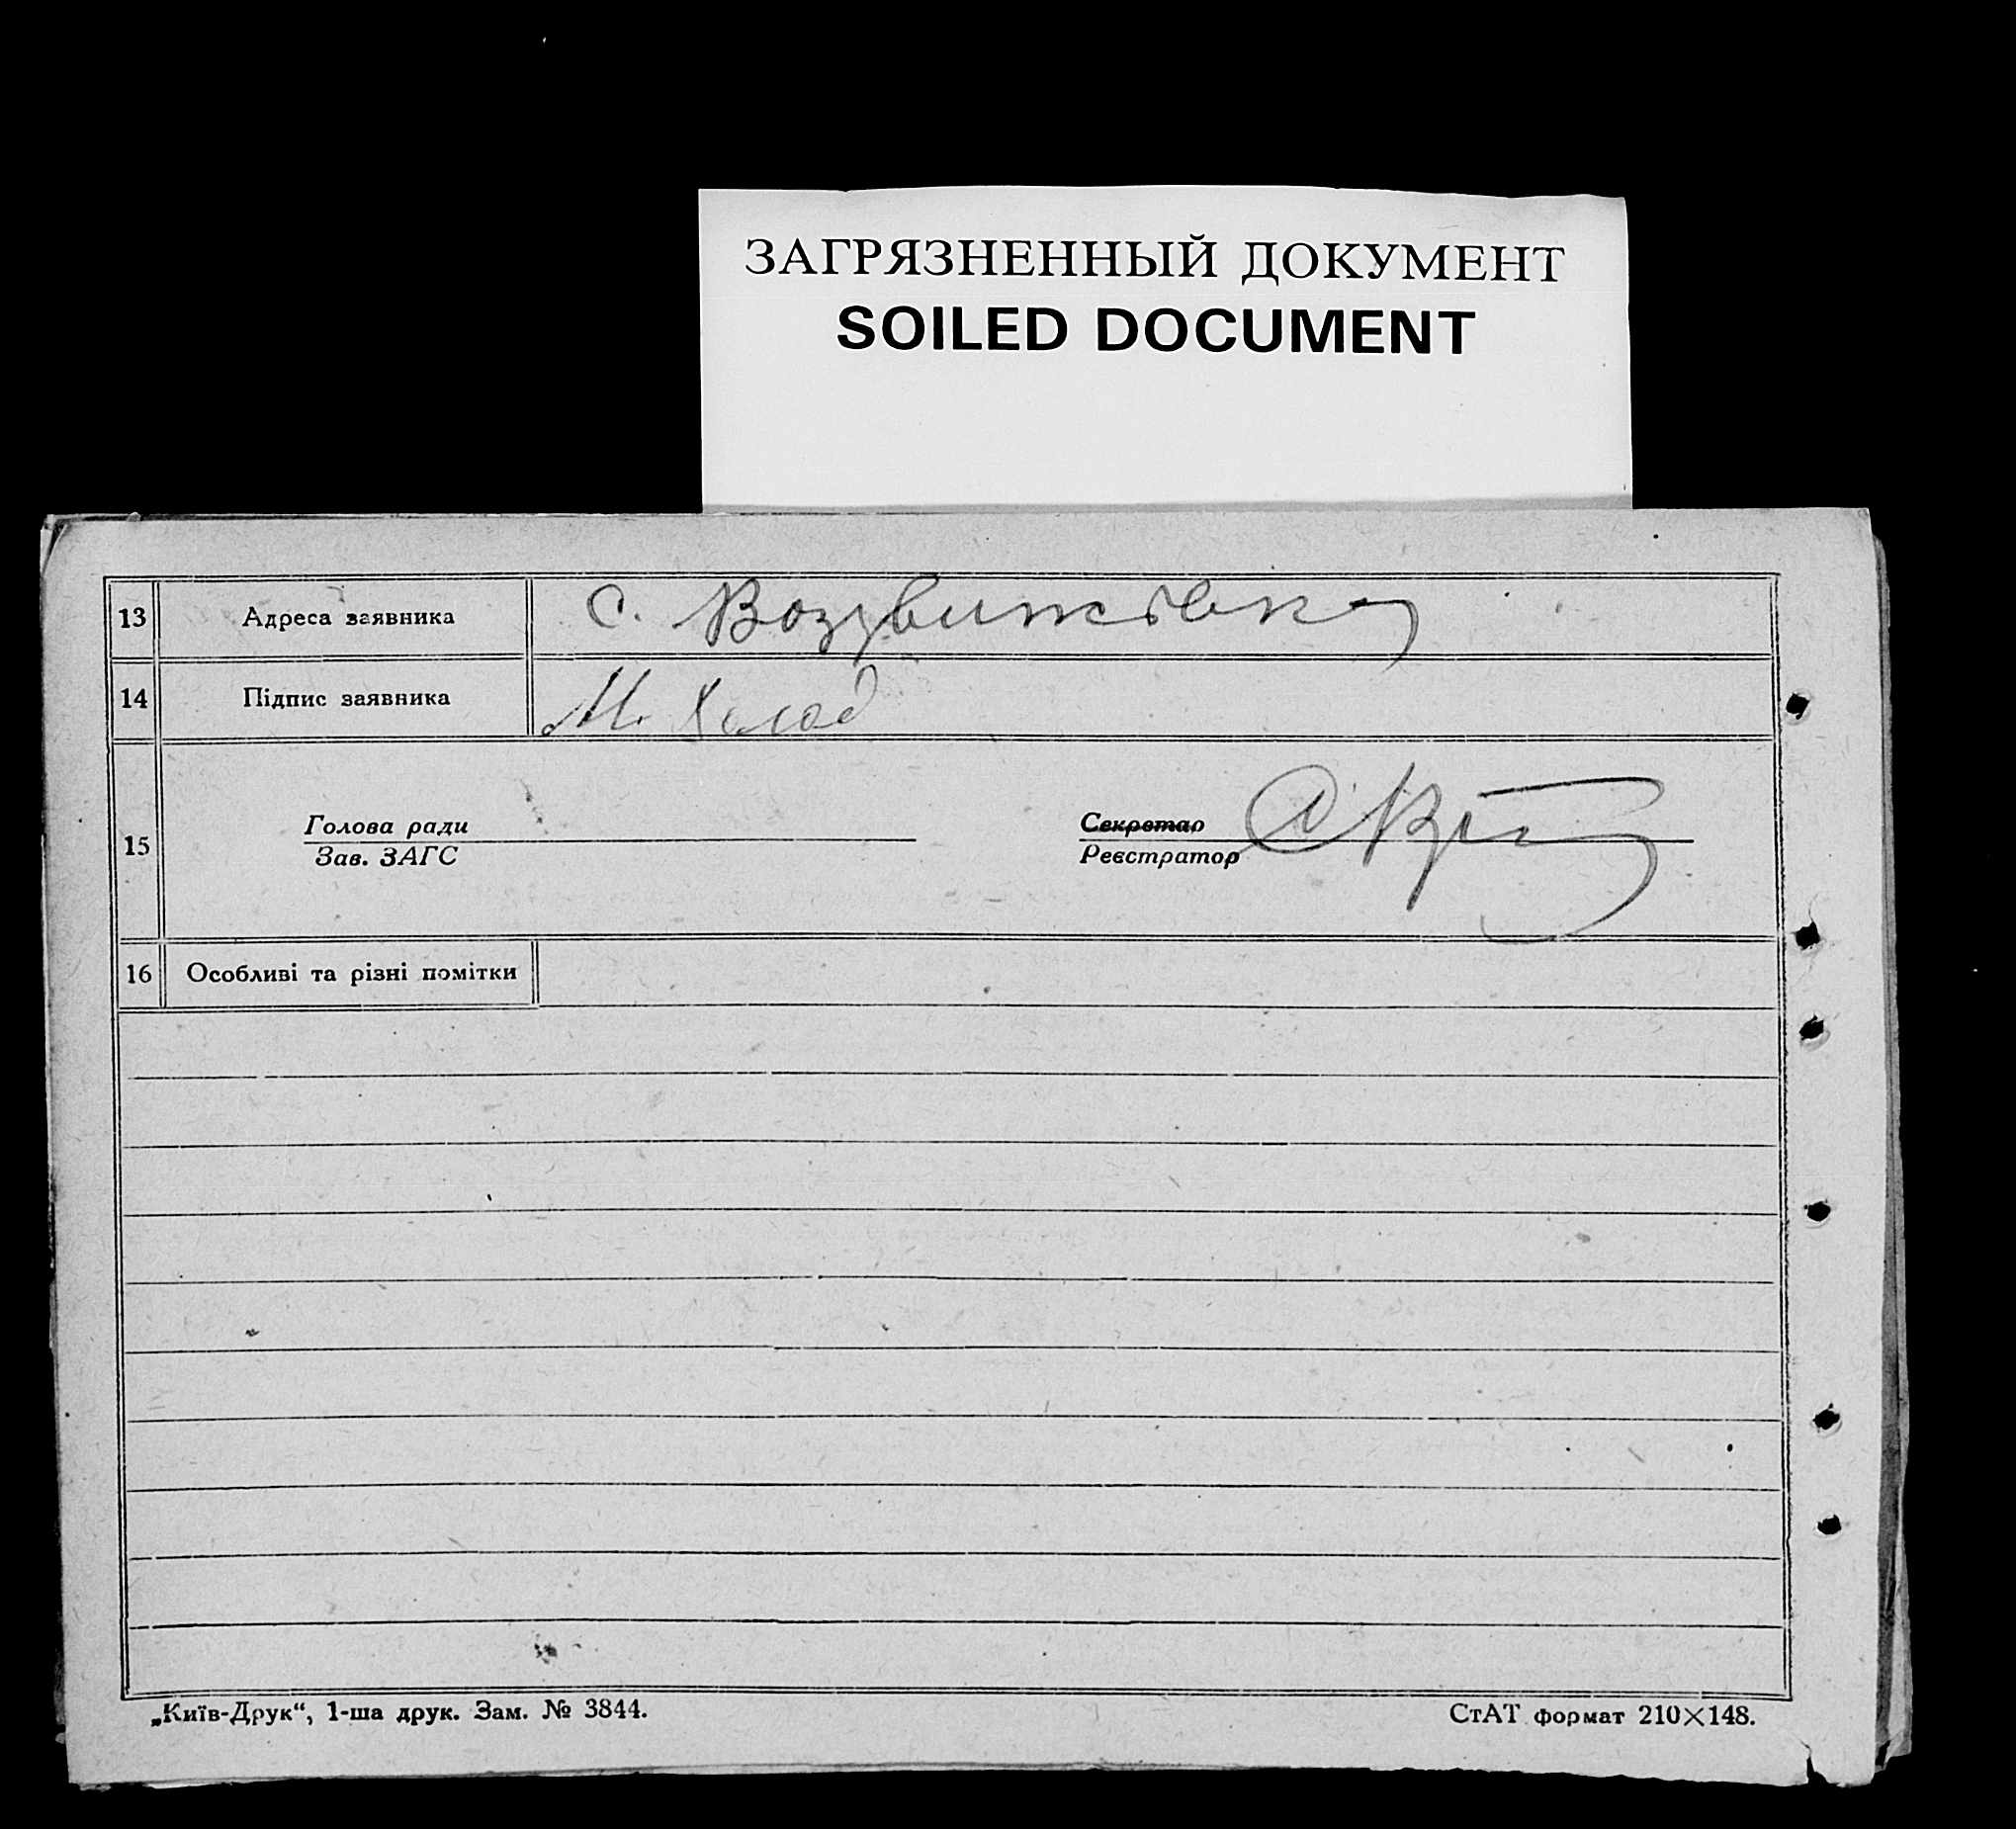 ЗАГРЯЗНЕННЫЙ ДОКУМЕНТ
SOILED DOCUMENT
13 Адреса заявника с. Воздвижівка
14 Підпис заявника М. Холод
15 Голова ради Секретар
Зав. ЗАГС Реєстратор
16 Особливі та різні помітки
„Київ-Друк“, 1-ша друк. Зам. № 3844. СтАТ формат 210×148.